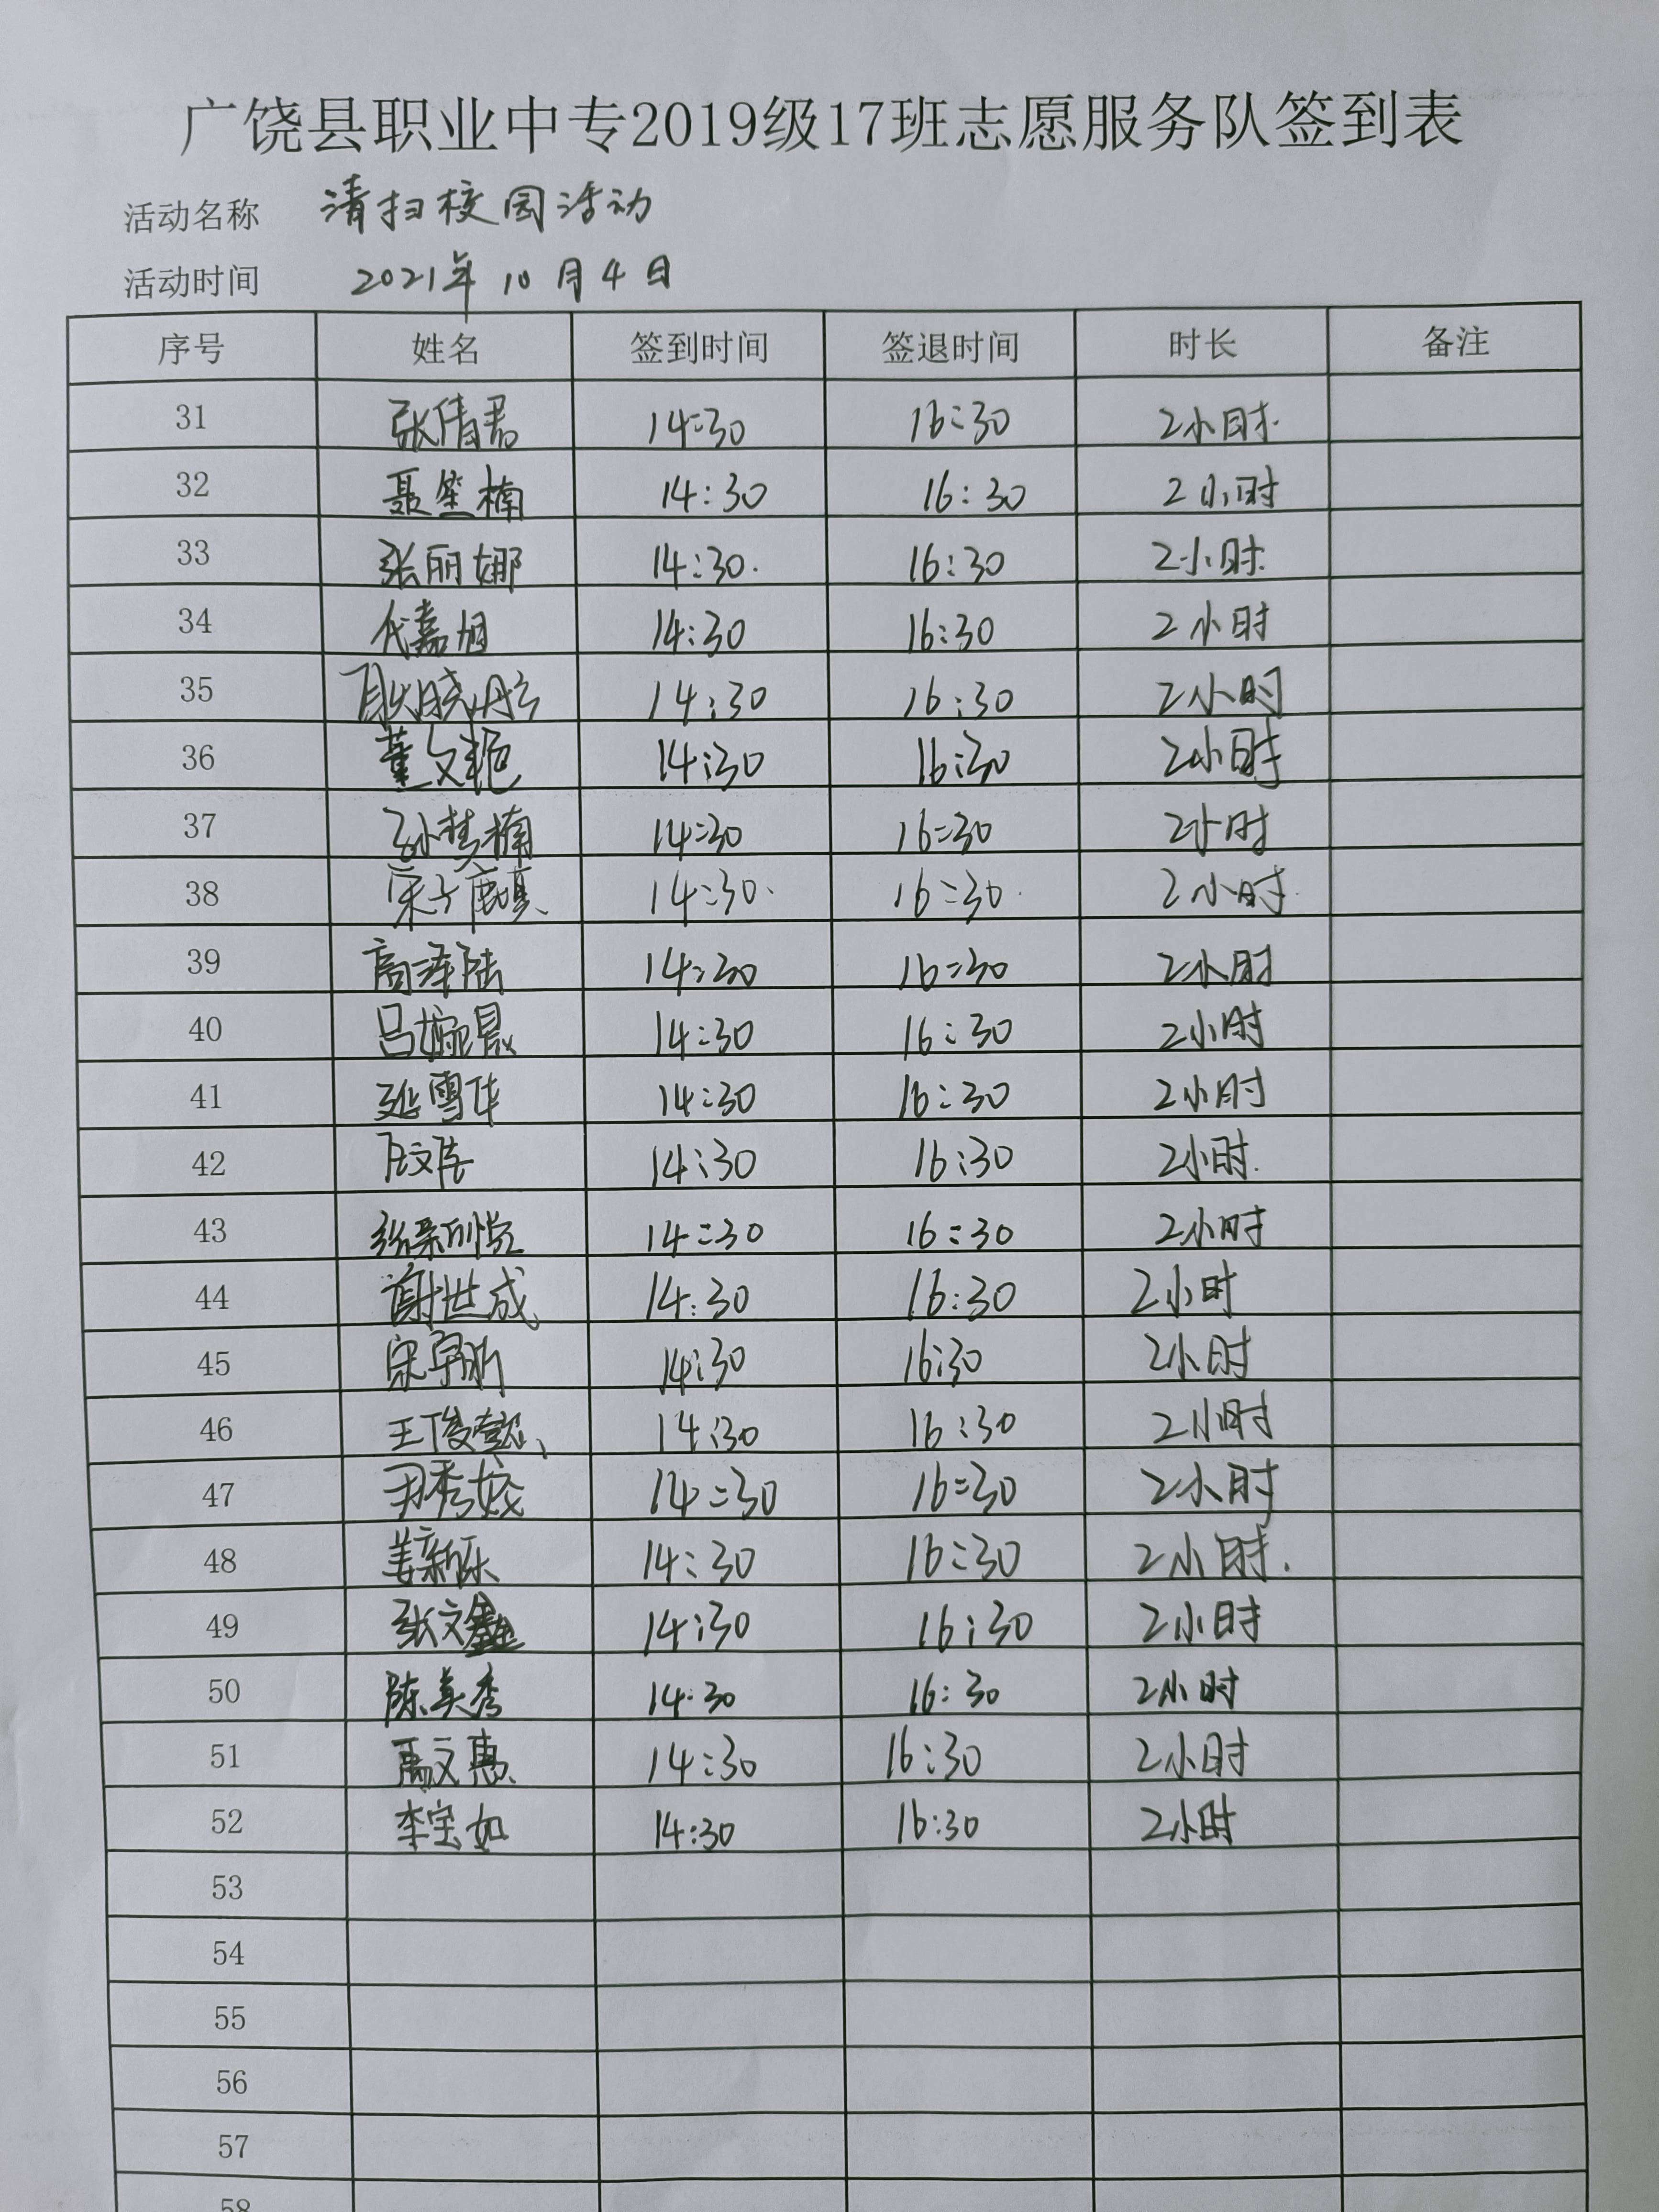 广饶县职业中专2019级17班志愿服务队签到表
活动名称 清扫校园活动
活动时间 2021年10月4日
序号 姓名 签到时间 签退时间 时长 备注
31 张倩君 14:30 16:30 2小时.
32 聂笙楠 14:30 16:30 2小时
33 张丽娜 14:30. 16:30 2小时.
34 代嘉旭 14:30 16:30 2小时
35 耿晓彤 14:30 16:30 2小时
36 董文艳 14:30 16:30 2小时
37 孙梦楠 14:30 16:30 2小时
38 宋子麒 14:30. 16:30. 2小时.
39 高泽陆 14:30 16:30 2小时
40 吕婉晨 14:30 16:30 2小时
41 延雪华 14:30 16:30 2小时
42 14:30 16:30 2小时.
43 14:30 16:30 2小时
44 谢世成 14:30 16:30 2小时
45 宋宇昕 14:30 16:30 2小时
46 王俊懿 14:30 16:30 2小时
47 尹秀姣 14:30 16:30 2小时
48 姜新乐 14:30 16:30 2小时.
49 张文鑫 14:30 16:30 2小时
50 陈美秀 14:30 16:30 2小时
51 禹文惠 14:30 16:30 2小时
52 李宝如 14:30 16:30 2小时
53
54
55
56
57
58